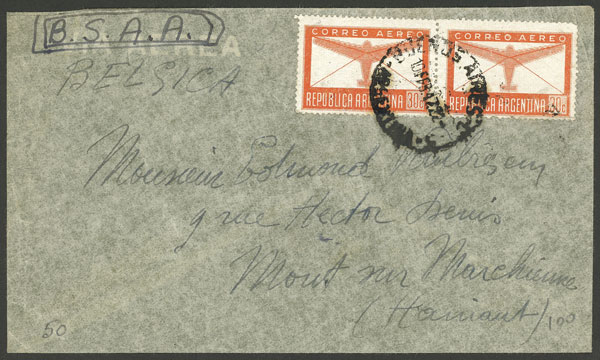 (B.S.A.A.)
BELGICA
CORREO AEREO
REPUBLICA ARGENTINA 30c
CORREO AEREO
REPUBLICA ARGENTINA 30c
BUENOS AIRES
Monsieur Edmond
9 rue Hector Denis
Mont sur Marchienne
(Hainaut)
50
100